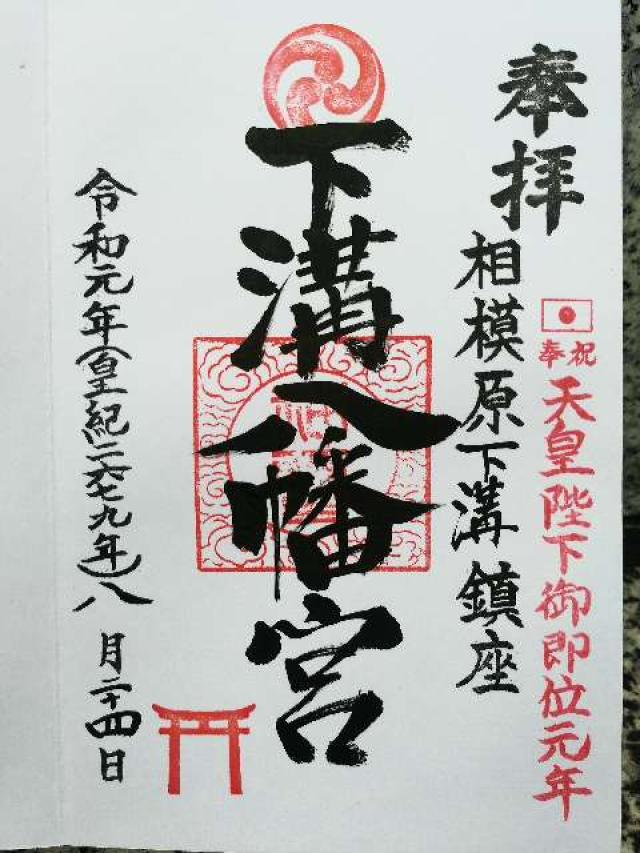 奉祝
天皇陛下御即位元年
奉拝
相模原下溝鎮座
下溝八幡宮
令和元年(皇紀二六七九年)八月二十四日